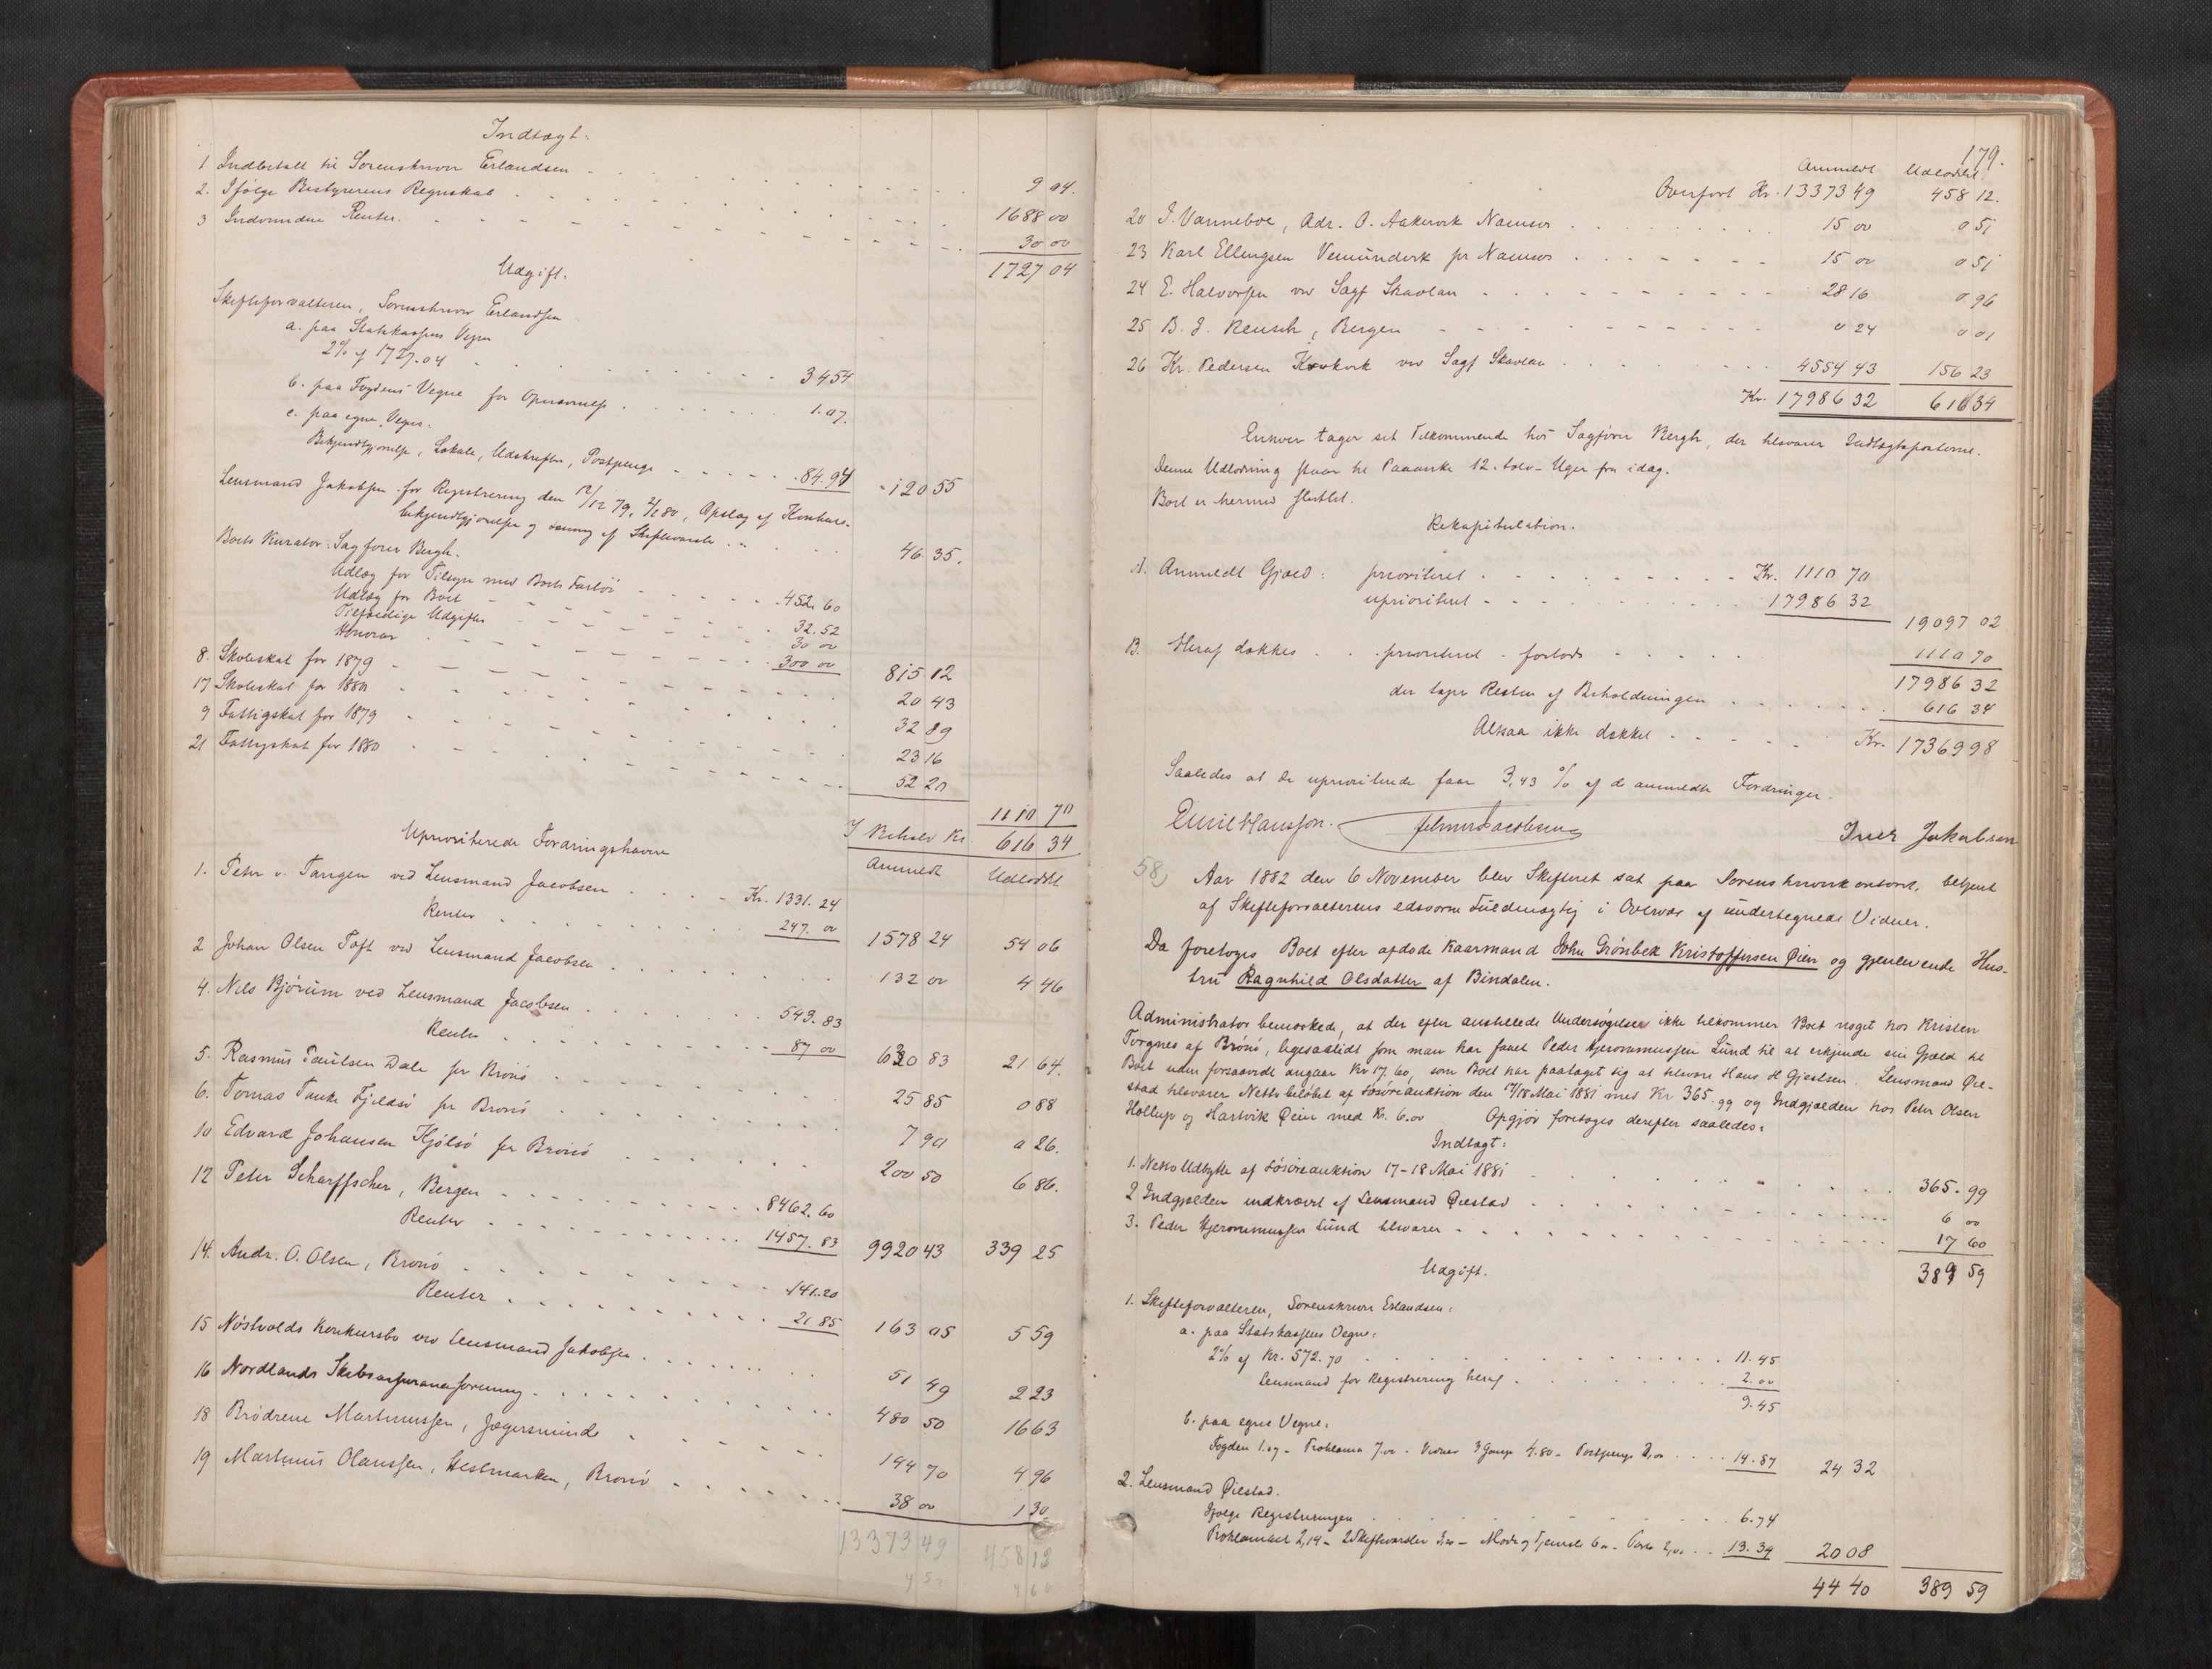 Indtægt:
1 Indbetalt til Sorenskriver Erlandsen 9 04.
2. Ifølge Bestyrerens Regnskab 1688 00
3 Indvundne Renter. 30 00
1727 04
Udgift.
Skifteforvalteren, Sorenskriver Erlandsen
a. paa Statskassens Vegne
2% af 1727.04 34 54
b. paa Fogdens Vegne for 1.07.
c. paa egne Vegne.
Bekjendtgjørelse, Lokale, Udskrifter, Postpenge 84.94 120 55
Lensmand Jakobsen for Registrering den 12/12 79, 2/1 80, Opslag af Konkurs-
bekjendtgjørelse og af Skiftevarsle 46 35.
Boets Kurator: Sagfører Bergh.
Udlæg for Tilsyn med Boets Fartøi 452.60
Udlæg for Boet 32.52
Tilfældige Udgifter 30 00
Honorar 300 00 815 12
8. Skoleskat for 1879 20 43
17 Skoleskat for 1880 32 89
9 Fattigskat for 1879 23 16
21 Fattigskat for 1880 52 20
1110 70
I Behold Kr. 616 34
Uprioriterede Fordringshavere
Anmeldt Udloddet
1. Peter v. Tangen ved Lensmand Jacobsen Kr. 1331.24
Renter 247.00 1578 24 54 06
2 Johan Olsen Toft ved Lensmand Jacobsen 132 00 4 46
4. Nils Bjørum ved Lensmand Jacobsen 543.83
Renter 87 00 630 83 21 64.
5. Rasmus Paulsen Dale pr Brønø 25 85 0 88
6. Tomas Tanke Fjeldsø pr Brønø 7 90 0 26.
10 Edvard Johansen Kjølsø pr Brønø 200 50 6 86.
12 Peter Scharffscher, Bergen 8462.60
Renter 1457.83 9920 43 339 25
14. Andr. O. Olsen, Brønø 141.20
Renter 21 85 163 05 5 59
15 Nøstvolds Konkursbo ved Lensmand Jakobsen 51 49 2 23
16 Nordlands Skibsassuranceforening 480 50 16 63
18 Brødrene Martinussen, Jægersminde 144 70 4 96
19 Martinus Olaussen, Vestmarken, Brønø 38 00 1 30
13373 49 458 12
179.
Anmeldt Udloddet
Overført Kr. 13373 49 458 12.
20 J. Vanneboe, Adr. O. Aakervik Namsos 15 00 0 51
23 Karl Ellingsen Vemundvik pr Namsos 15 00 0 51
24 E. Halvorsen ved Sagf Skavlan 28 16 0 96
25 B. J. Reusch, Bergen 0 24 0 01
26 Kr. Pedersen ved Sagf Skavlan 4554 43 156 23
Kr. 17986 32 616 34
Enhver tager sit Tilkommende hos Sagfører Bergh, der tilsvarer Indtægtsposterne.
Denne Udlodning staar til Paaanke 12. tolv - Uger fra idag.
Boet er hermed sluttet.
Rekapitulation.
A. Anmeldt Gjæld: prioriteret Kr. 1110 70
uprioriteret 17986 32
19097 02
B. Heraf dækkes prioriteret - forlods 1110 70
17986 32
der tages Resten af Beholdningen 616 34
Altsaa ikke dækket Kr. 17369 98
Saaledes at de uprioriterede faar 3,43 % af de anmeldte Fordringer.
Emil Hansson. Iver Jakobsen
58) Aar 1882 den 6 November blev Skifteret sat paa Sorenskriverkontoret, betjent
af Skifteforvalterens edsvorne Fuldmægtig i Overvær af undertegnede Vidner.
Da foretoges Boet efter afdøde Kaarmand John Grønbek Kristoffersen Øien og gjenlevende Hus-
tru Ragnhild Olsdatter af Bindalen.
Administrator bemærkede, at der efter anstillede Undersøgelser ikke tilkommer Boet noget hos Kristen
Torgnes af Brønø, ligesaalidt som man har faaet Peder Hjeronimussen Lund til at erkjende sin Gjæld til
Boet uden forsaavidt angaar Kr 17,60, som Boet har paataget sig at tilsvare Hans H Gjertsen. Lensmand Øie-
stad tilsvarer Nettobeløbet af Løsøreauktion den 17/18 Mai 1881 med Kr 365.99 og Indgjælden hos Peter Olsen
Hollup og Hartvik Øien med Kr. 6.00 Opgjør foretoges derefter saaledes:
Indtægt:
1. Netto Udbytte af Løsøreauktion 17-18 Mai 1881 365.99
2 Indgjælden indkrævet af Lensmand Øiestad 6 00
3. Peder Hjeronimussen Lund tilsvarer 17 60
389 59
Udgift.
1. Skifteforvalteren, Sorenskriver Erlandsen:
a. paa Statskassens Vegne:
2% af Kr. 572.70 11.45
Lensmand for Registrering heraf 2.00
9.45
b. paa egne Vegne.
Fogden 1.07 - Proklama 7.00 - Vidner 3 Gange 4.80 - Postpenge 2,00 14.87 24 32
2. Lensmand Øiestad.
Ifølge Registreringen 6.74
Proklamaet 2,14 - 2 Skiftevarsler 13.34 20 08
44 40 389 59